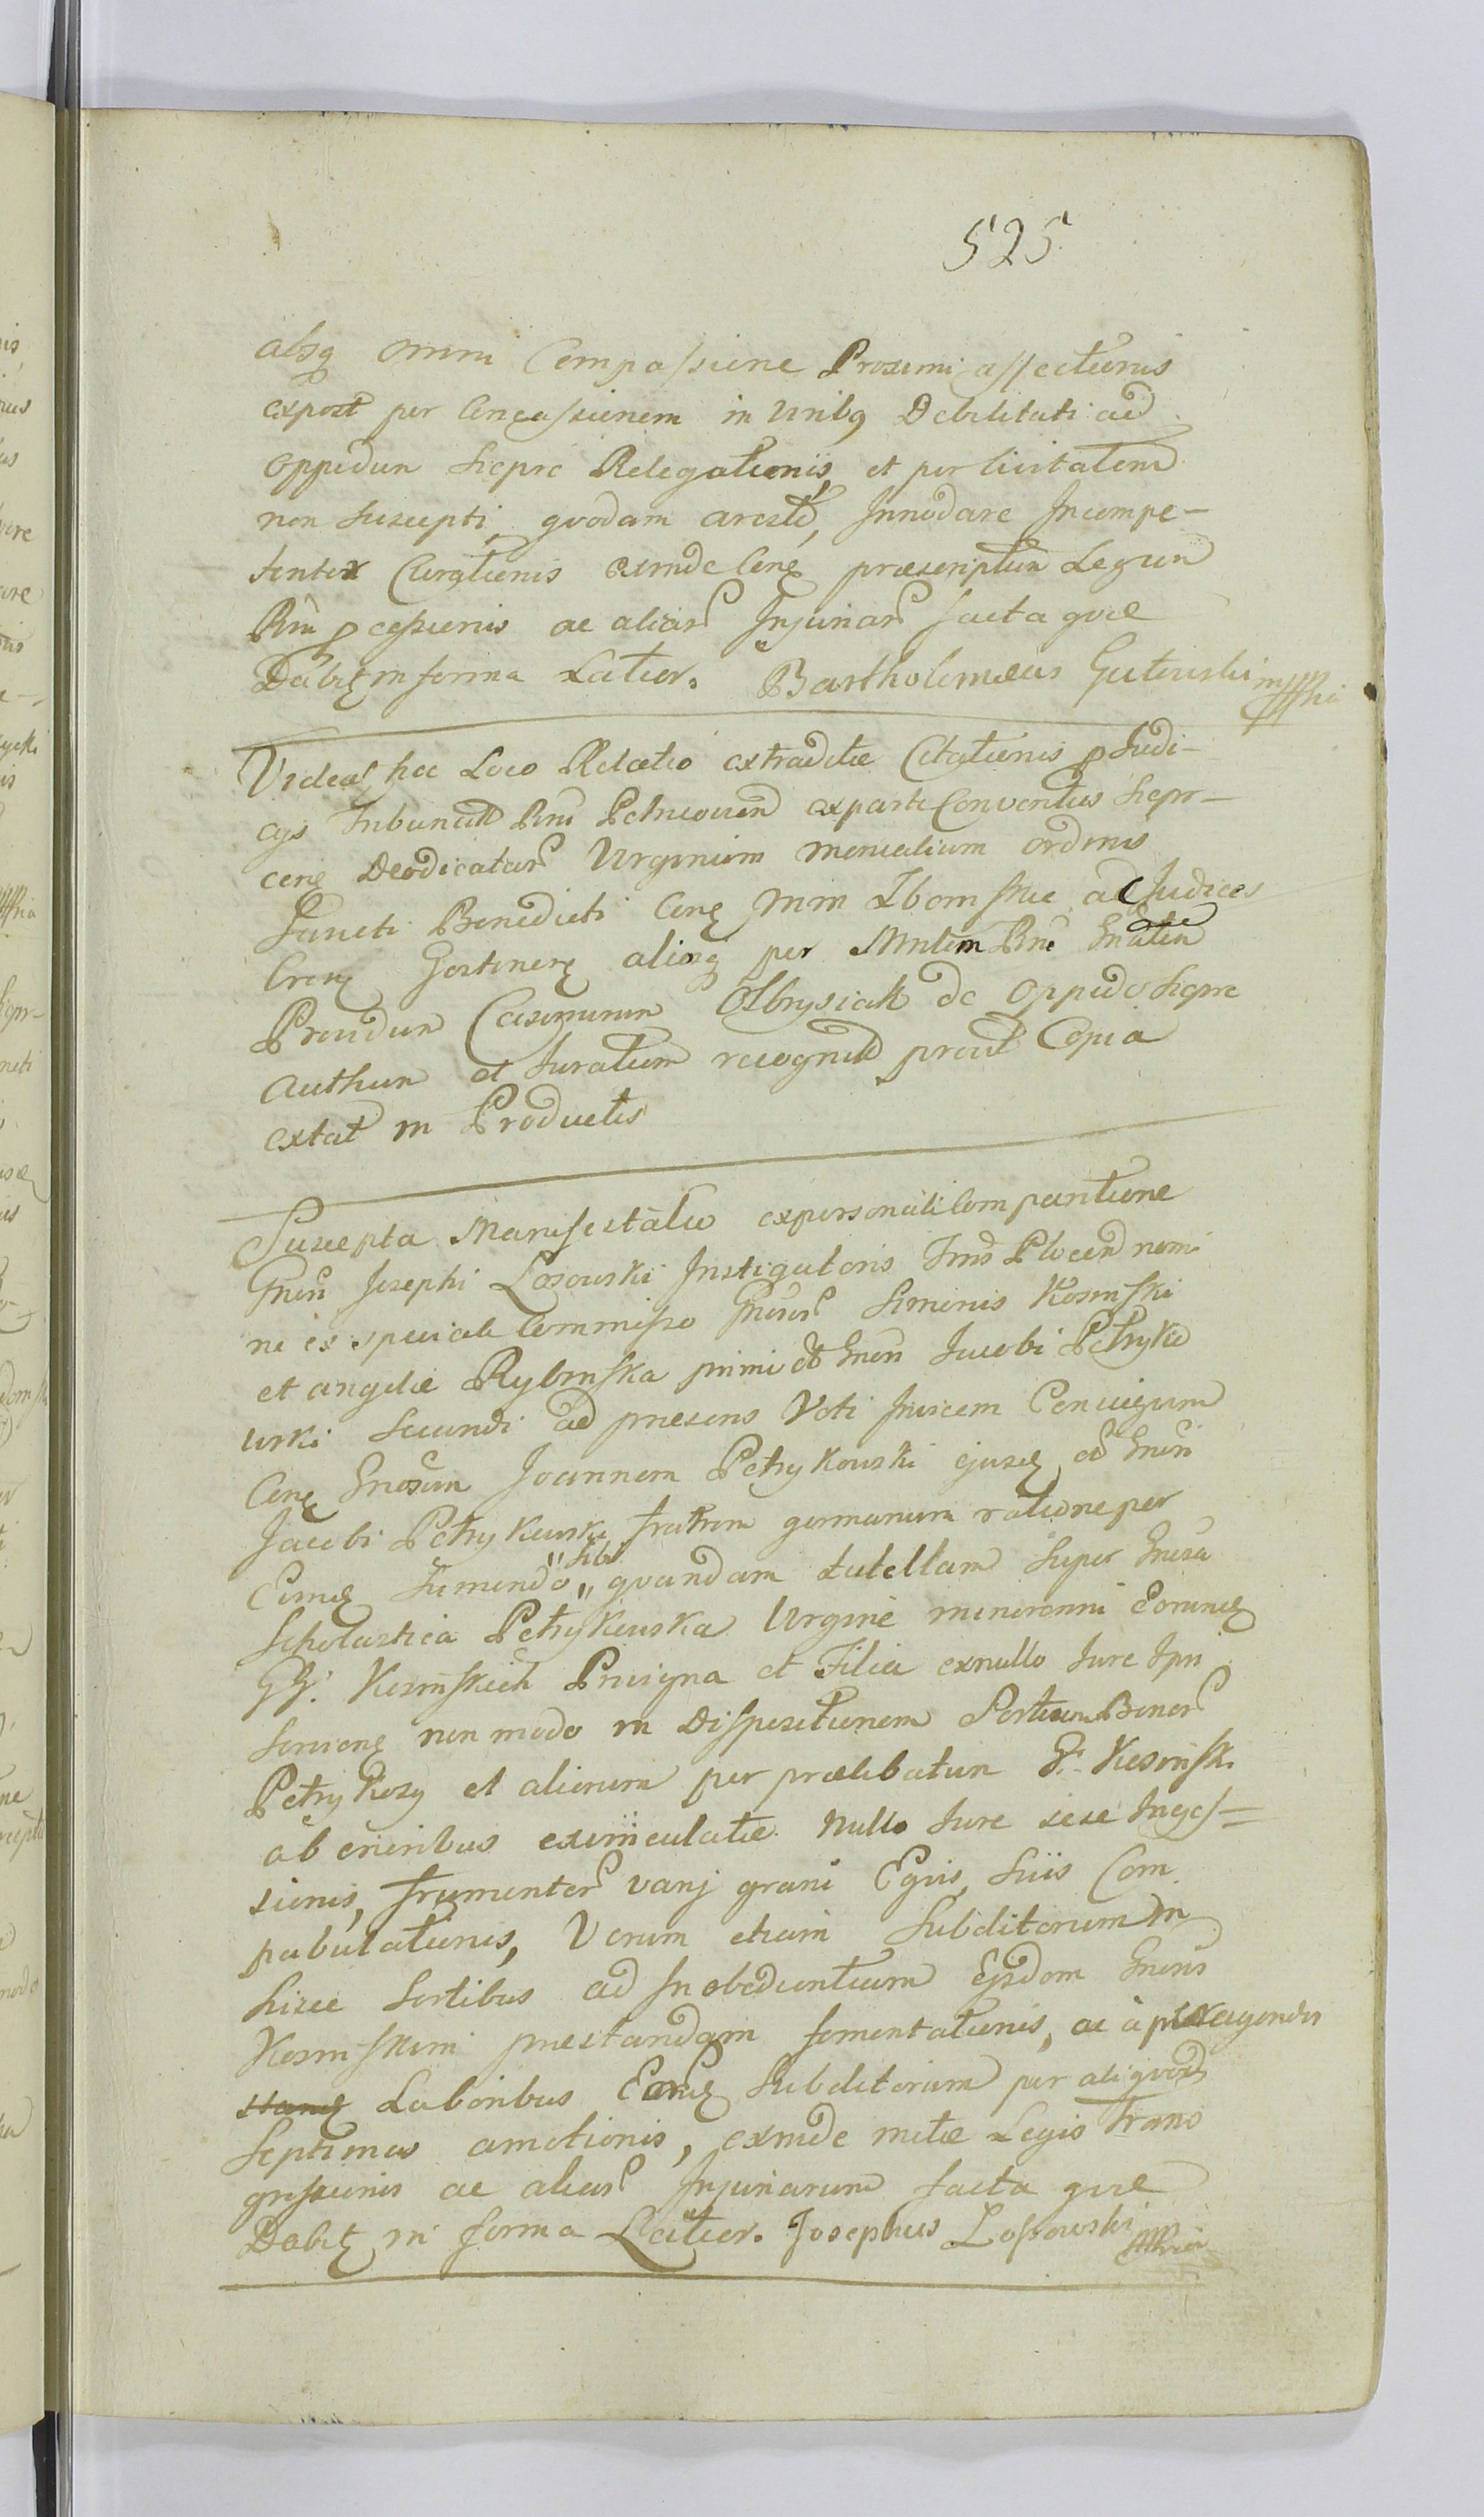 525
absq omni Compassione Proximi affectionis
expost per Concussionem in Viribq Debilitati ad
Oppidum Siepre Relegationis, et per Civitatem
non suscepti quodam arestto, Innodare Incompe-
tenter Citationis exinde Cong praescriptum Legum
Rni pcessionis ac aliar Injuriar facta quae
Dabit in forma Latior. Bartholomaeus Gutowski mppria
Videat hoc Loco Relatio extraditae Citationis p Judi-
cys Tribunal Rni Petricovien ex parte Conventus Siepr-
ceng Deodicatar Virginum monialium ordinis
Sancti Benedicti Cong Mm Zbomskie ad Judices
Creng Gostineng aliosq per Mntem Rni Gnalem
Providum Casimirum Olbrysiak de Oppido Siepre
Authum et Juratum recognit prout Copia
extat in Productis
Suscepta Manifestatio ex personali Comparitione
Gnosi Josephi Losowski Instigatoris Trnis Plocen nomi
ne ex speciali Commisso Gnosor Simonis Kosinski
et angelae Rybinska primi et Gnosi Jacobi Petryko
wski secundi ad praesens Voti Invicem Conjugum
Cong Gnosum Joannem Petrykowski ejusdq ad Gnosi
Jacobi Petrykowski fratrem germanum ratione per
Eumq Sumendo "sibi" quandam tutellam super Gnosa
Scholastica Petrykowska Virgine minorenni Eorumq
GG. Kosinskich Privigna et Filia ex nullo Jure Ipsi
servieng non modo in Dispositionem Sortium Bonor
Petrykozy et alienum per praelibatum G. Kosinski
ab oneribus evinculatae Nullo Jure sese Inges=
sionis, frumentor varij grani Equis Suis Com
pabulationis, Verum etiam Subditorum in
hisce Sortibus ad Inobedientiam Ejsdem Gnosis
Kosinskim praestandam fomentationis, ac a peragendis
Laboribus Eorq Subditorum per aliquod
Septimas amotionis, exinde metae Legis Trans
gressionis ac aliar Injuriarum facta quae
Dabit in forma Latior. Josephus Lossowski mppria